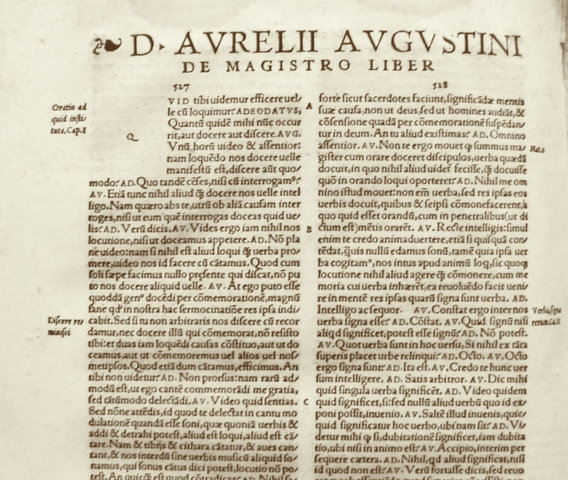 D. AVRELII AVGVSTINI
DE MAGISTRO LIBER
527
Oratio ad
quid insti-
tuta, Cap. I
Q
VID tibi uidemur efficere uel-
le cũ loquimur: ADEODATVS,
Quantũ quidẽ mihi nũc occur
rit, aut docere aut discere. AVG.
Vnũ, horũ uideo & assentior:
nam loquẽdo nos docere uelle
manifestũ est, discere aũt quo-
modo: AD. Quo tandẽ cẽses, nisi cũ interrogam⁹:
AV. Etiã tunc nihil aliud q̃ docere nos uelle intel
ligo. Nam quæro abs te, utrũ ob aliã causam inter
roges, nisi ut eum quẽ interrogas doceas quid ue-
lis: AD. Verũ dicis. AV. Vides ergo iam nihil nos
locutione, nisi ut doceamus appetere. AD. Nõ pla
ne uideo: nam si nihil est aliud loqui q̃ uerba pro
mere, uideo nos id facere cũ cãtamus. Quod cum
soli sæpe facimus nullo præsente qui discat, nõ pu
to nos docere aliquid uelle. AV. At ego puto esse
quoddã gen⁹ docẽdi per cõmemorationẽ, magnũ
sane qđ in nostra hac sermocinatiõe res ipsa indi
Discere re-
minisci
cabit. Sed si tu non arbitraris nos discere cũ recor
damur, nec docere illũ qui cõmemorat, nõ resisto
tibi: et duas iam loquẽdi causas cõstituo, aut ut do
ceamus, aut ut cõmemoremus uel alios uel nos-
metipsos. Quod etiã dum cãtamus, efficimus. An
tibi non uidetur: AD. Non prorsus: nam rarũ ad-
modũ est, ut ego cantẽ commemorãdi me gratia,
sed tãtũmodo delectãdi. AV. Video quid sentias.
Sed nõne attẽdis, id quod te delectat in cantu mo
dulationẽ quandã esse soni, quæ quoniã uerbis &
addi & detrahi potest, aliud est loqui, aliud est cã-
tare. Nam & tibijs & cithara cãtatur, & aues can-
tant, & nos interdũ sine uerbis musicũ aliquid so-
namus, qui sonus cãtus dici potest, locutio nõ po-
test. An quicq̃ est quod cõtradicas: AD. Nihil sa
528
A
B
C
forte sicut sacerdotes faciunt, significãdæ mentis
suæ causa, non ut deus, sed ut homines audiãt, &
cõsensione quadã per cõmemorationẽ suspẽdan-
tur in deum. An tu aliud existimas: AD. Omnino
assentior. AV. Non te ergo mouet q̃ summus ma-
gister cum orare doceret discipulos, uerba quædã
docuit, in quo nihil aliud uidet̃ fecisse, q̃ docuisse
quõ in orando loqui oporteret: AD. Nihil me om
nino istud mouet: non em̃ uerba, sed res ipsas eos
uerbis docuit, quibus & seipsi cõmonefacerent, a
quo quid esset orandũ, cum in penetralibus (ut di
ctum est) mẽtis orarẽt. AV. Recte intelligis: simul
enim te credo animaduertere, etiã si quisquã con-
tẽdat, quis nullũ edamus sonũ, tamẽ quia ipsa uer
ba cogitam⁹, nos intus apud animũ loqui, sic quoq̃
locutione nihil aliud agere q̃ cõmonere, cum me
moria cui uerba inhærẽt, ea reuoluẽdo facit ueni
re in mentẽ res ipsas quarũ signa sunt uerba. AD.
Intelligo ac sequor. AV. Constat ergo inter nos
uerba signa esse: AD. Cõstat. AV. Quid signũ nisi
aliqđ significet, potest esse signũ: AD. Nõ potest.
AV. Quot uerba sunt in hoc uersu, Si nihil ex tãta
superis placet urbe relinqui: AD. Octo. AV. Octo
ergo signa sunt: AD. Ita est. AV. Credo te hunc uer
sum intelligere. AD. Satis arbitror. AV. Dic mihi
quid singula uerba significẽt. AD. Video quidem
quid significet, si: sed nullũ aliud uerbũ quo id ex-
poni possit, inuenio. AV. Saltẽ illud inuenis, quic-
quid significatur hoc uerbo, ubi nam sit: AD. Vi-
detur mihi q̃ si, dubitationẽ significet, iam dubita
tio, ubi nisi in animo est: AV. Accipio, interim per
sequere cætera. AD. Nihil, qđ aliud significat, nisi
id quod non est: AV. Verũ fortasse dicis, sed reuo